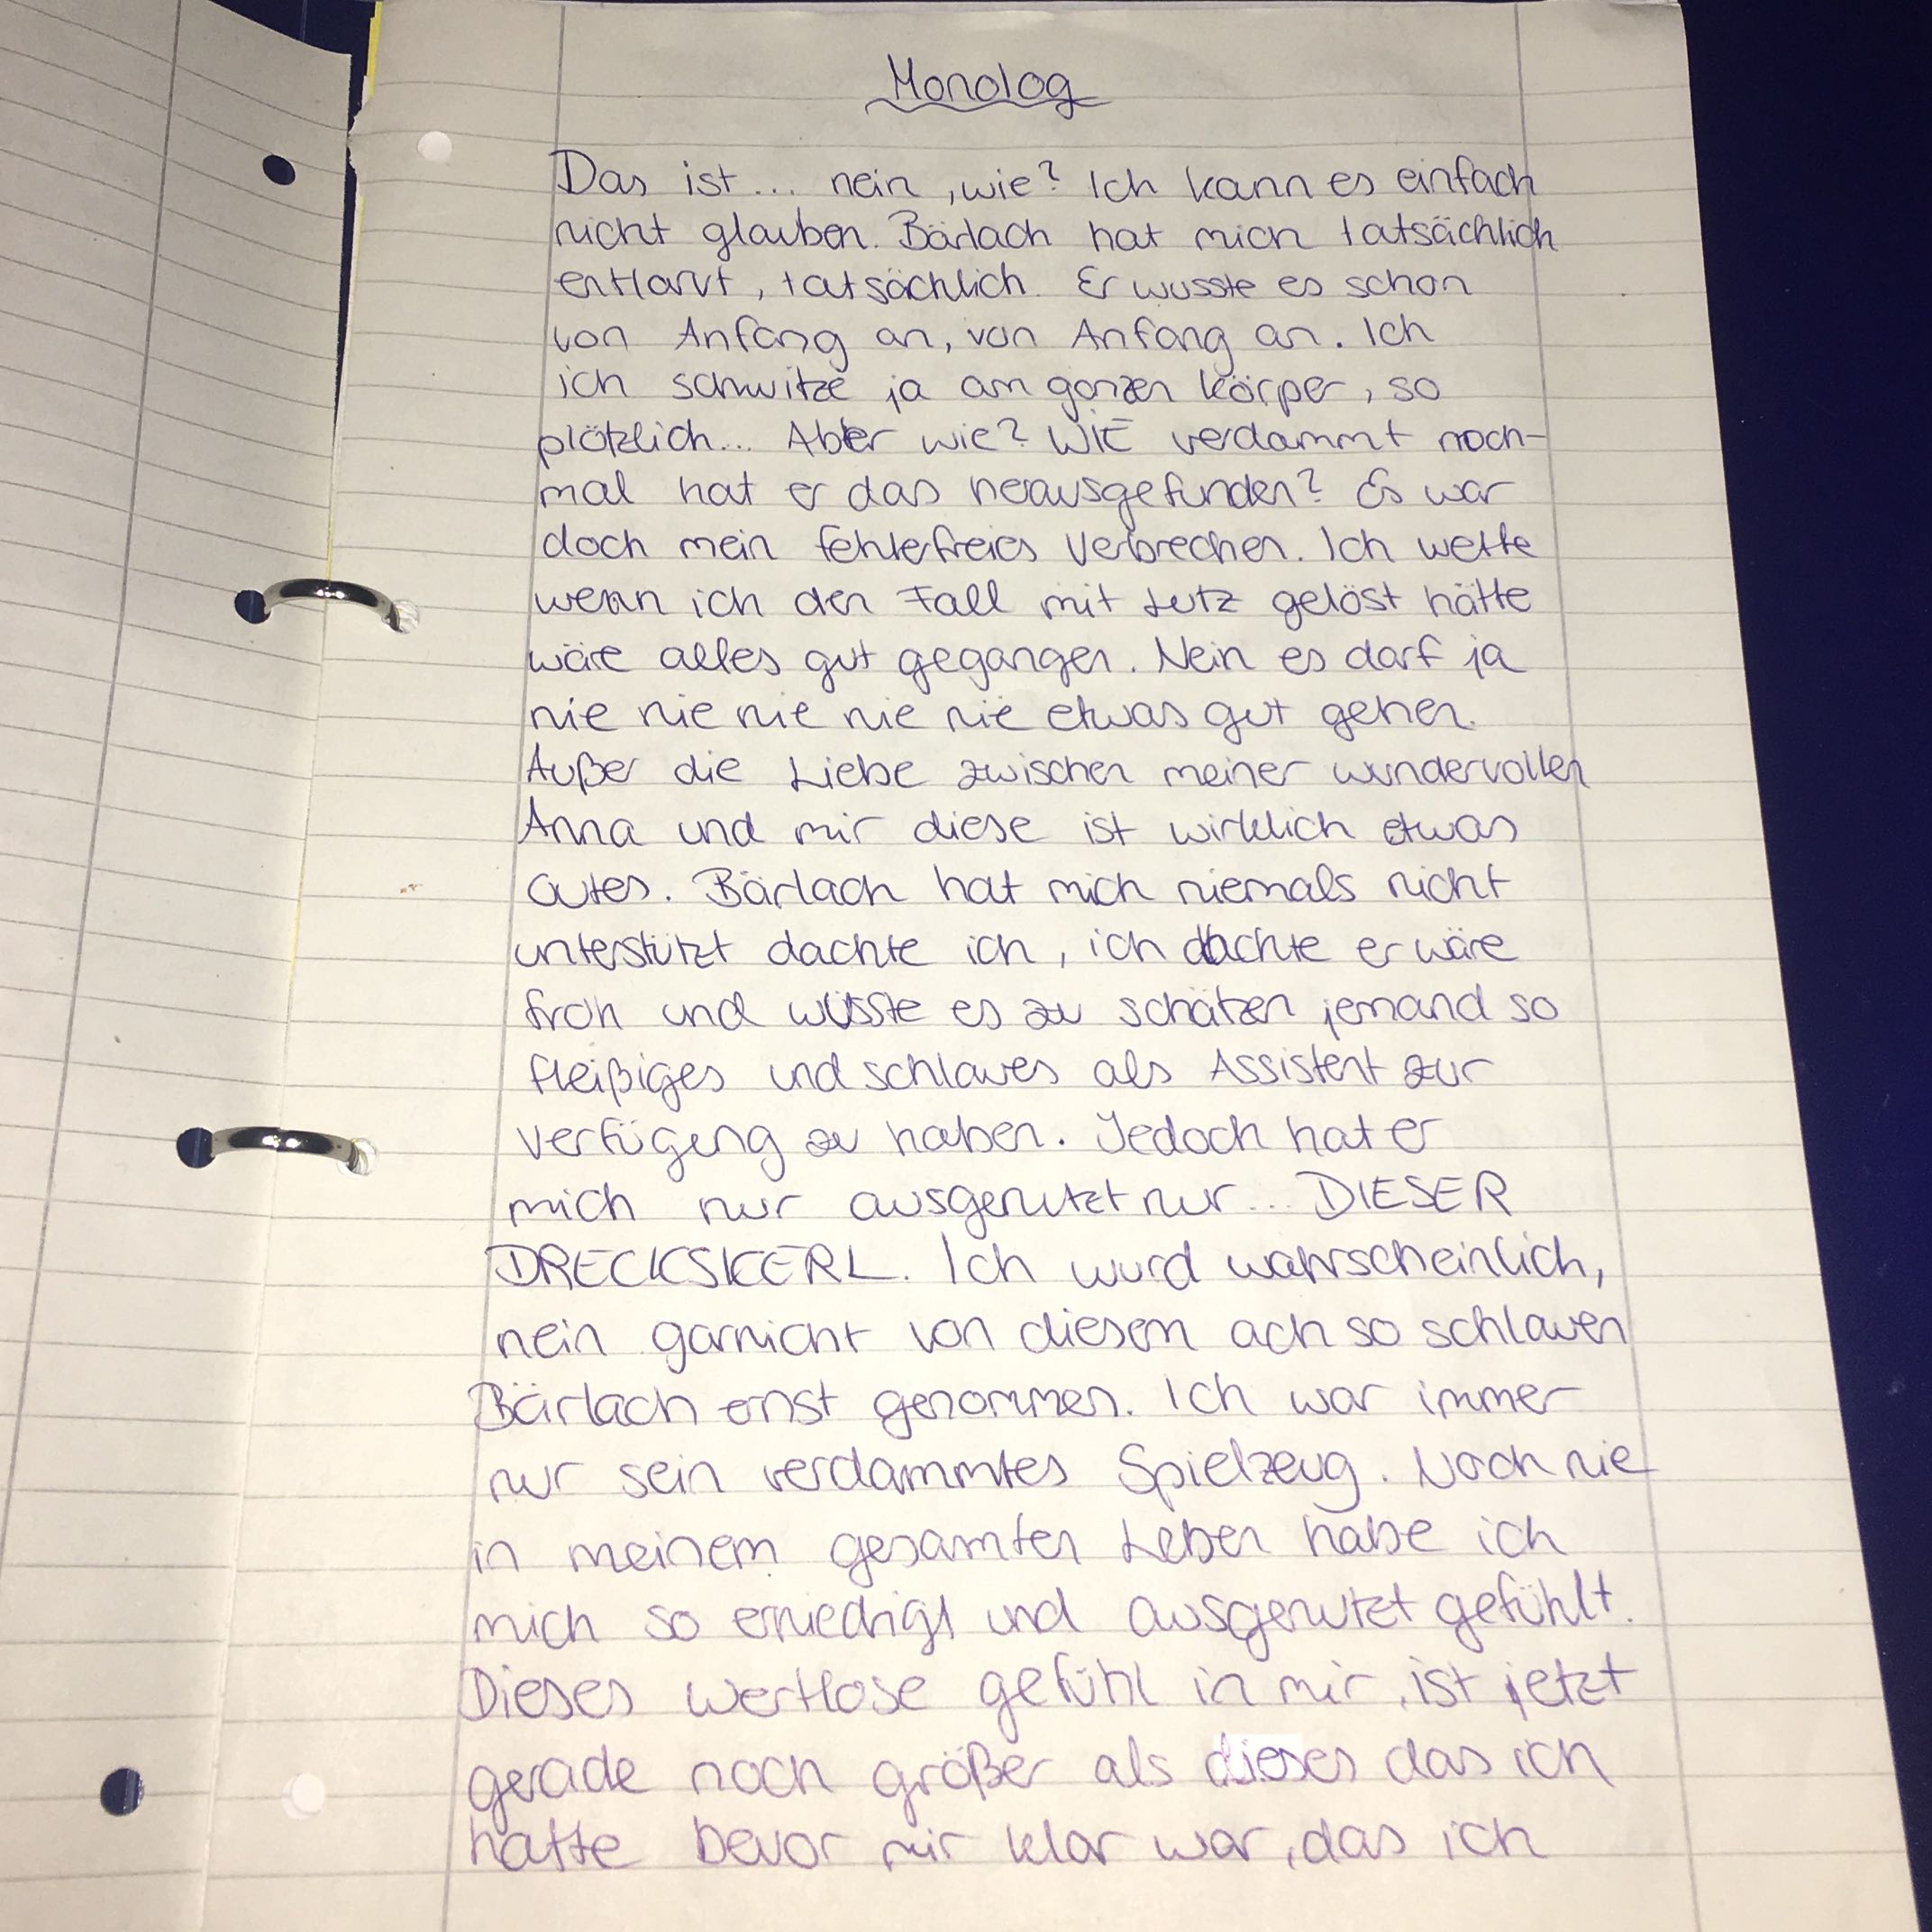 Monolog
Das ist... nein, wie? Ich kann es einfach
nicht glauben. Bärlach hat mich tatsächlich
entlarvt, tatsächlich. Er wusste es schon
von Anfang an, von Anfang an. Ich
ich schwitze ja am ganzen Körper, so
plötzlich... Aber wie? WIE verdammt noch-
mal hat er das herausgefunden? Es war
doch mein fehlerfreies Verbrechen. Ich wette
wenn ich den Fall mit Lutz gelöst hätte
wäre alles gut gegangen. Nein es darf ja
nie nie nie nie nie etwas gut gehen.
Außer die Liebe zwischen meiner wundervollen
Anna und mir diese ist wirklich etwas
Gutes. Bärlach hat mich niemals nicht
unterstützt dachte ich, ich dachte er wäre
froh und wüsste es zu schätzen jemand so
fleißiges und schlaues als Assistent zur
Verfügung zu haben. Jedoch hat er
mich nur ausgenutzt nur... DIESER
DRECKSKERL. Ich wurd wahrscheinlich,
nein garnicht von diesem ach so schlauen
Bärlach ernst genommen. Ich war immer
nur sein verdammtes Spielzeug. Noch nie
in meinem gesamten Leben habe ich
mich so erniedrigt und ausgenutzt gefühlt.
Dieses wertlose gefühl in mir, ist jetzt
gerade noch größer als dieses das ich
hatte bevor mir klar war, das ich